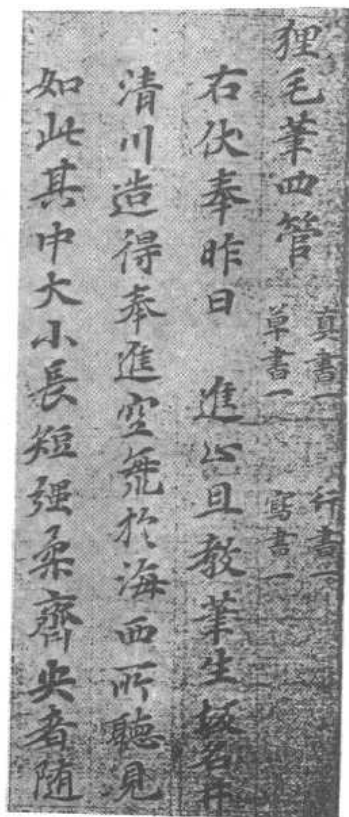 狸毛筆四管 真書一 行書一
草書一 寫書一
右伏奉昨日 進止且教筆生坂名井
清川造得奉進空海於海西所聽見
如此其中大小長短強柔齊尖者隨